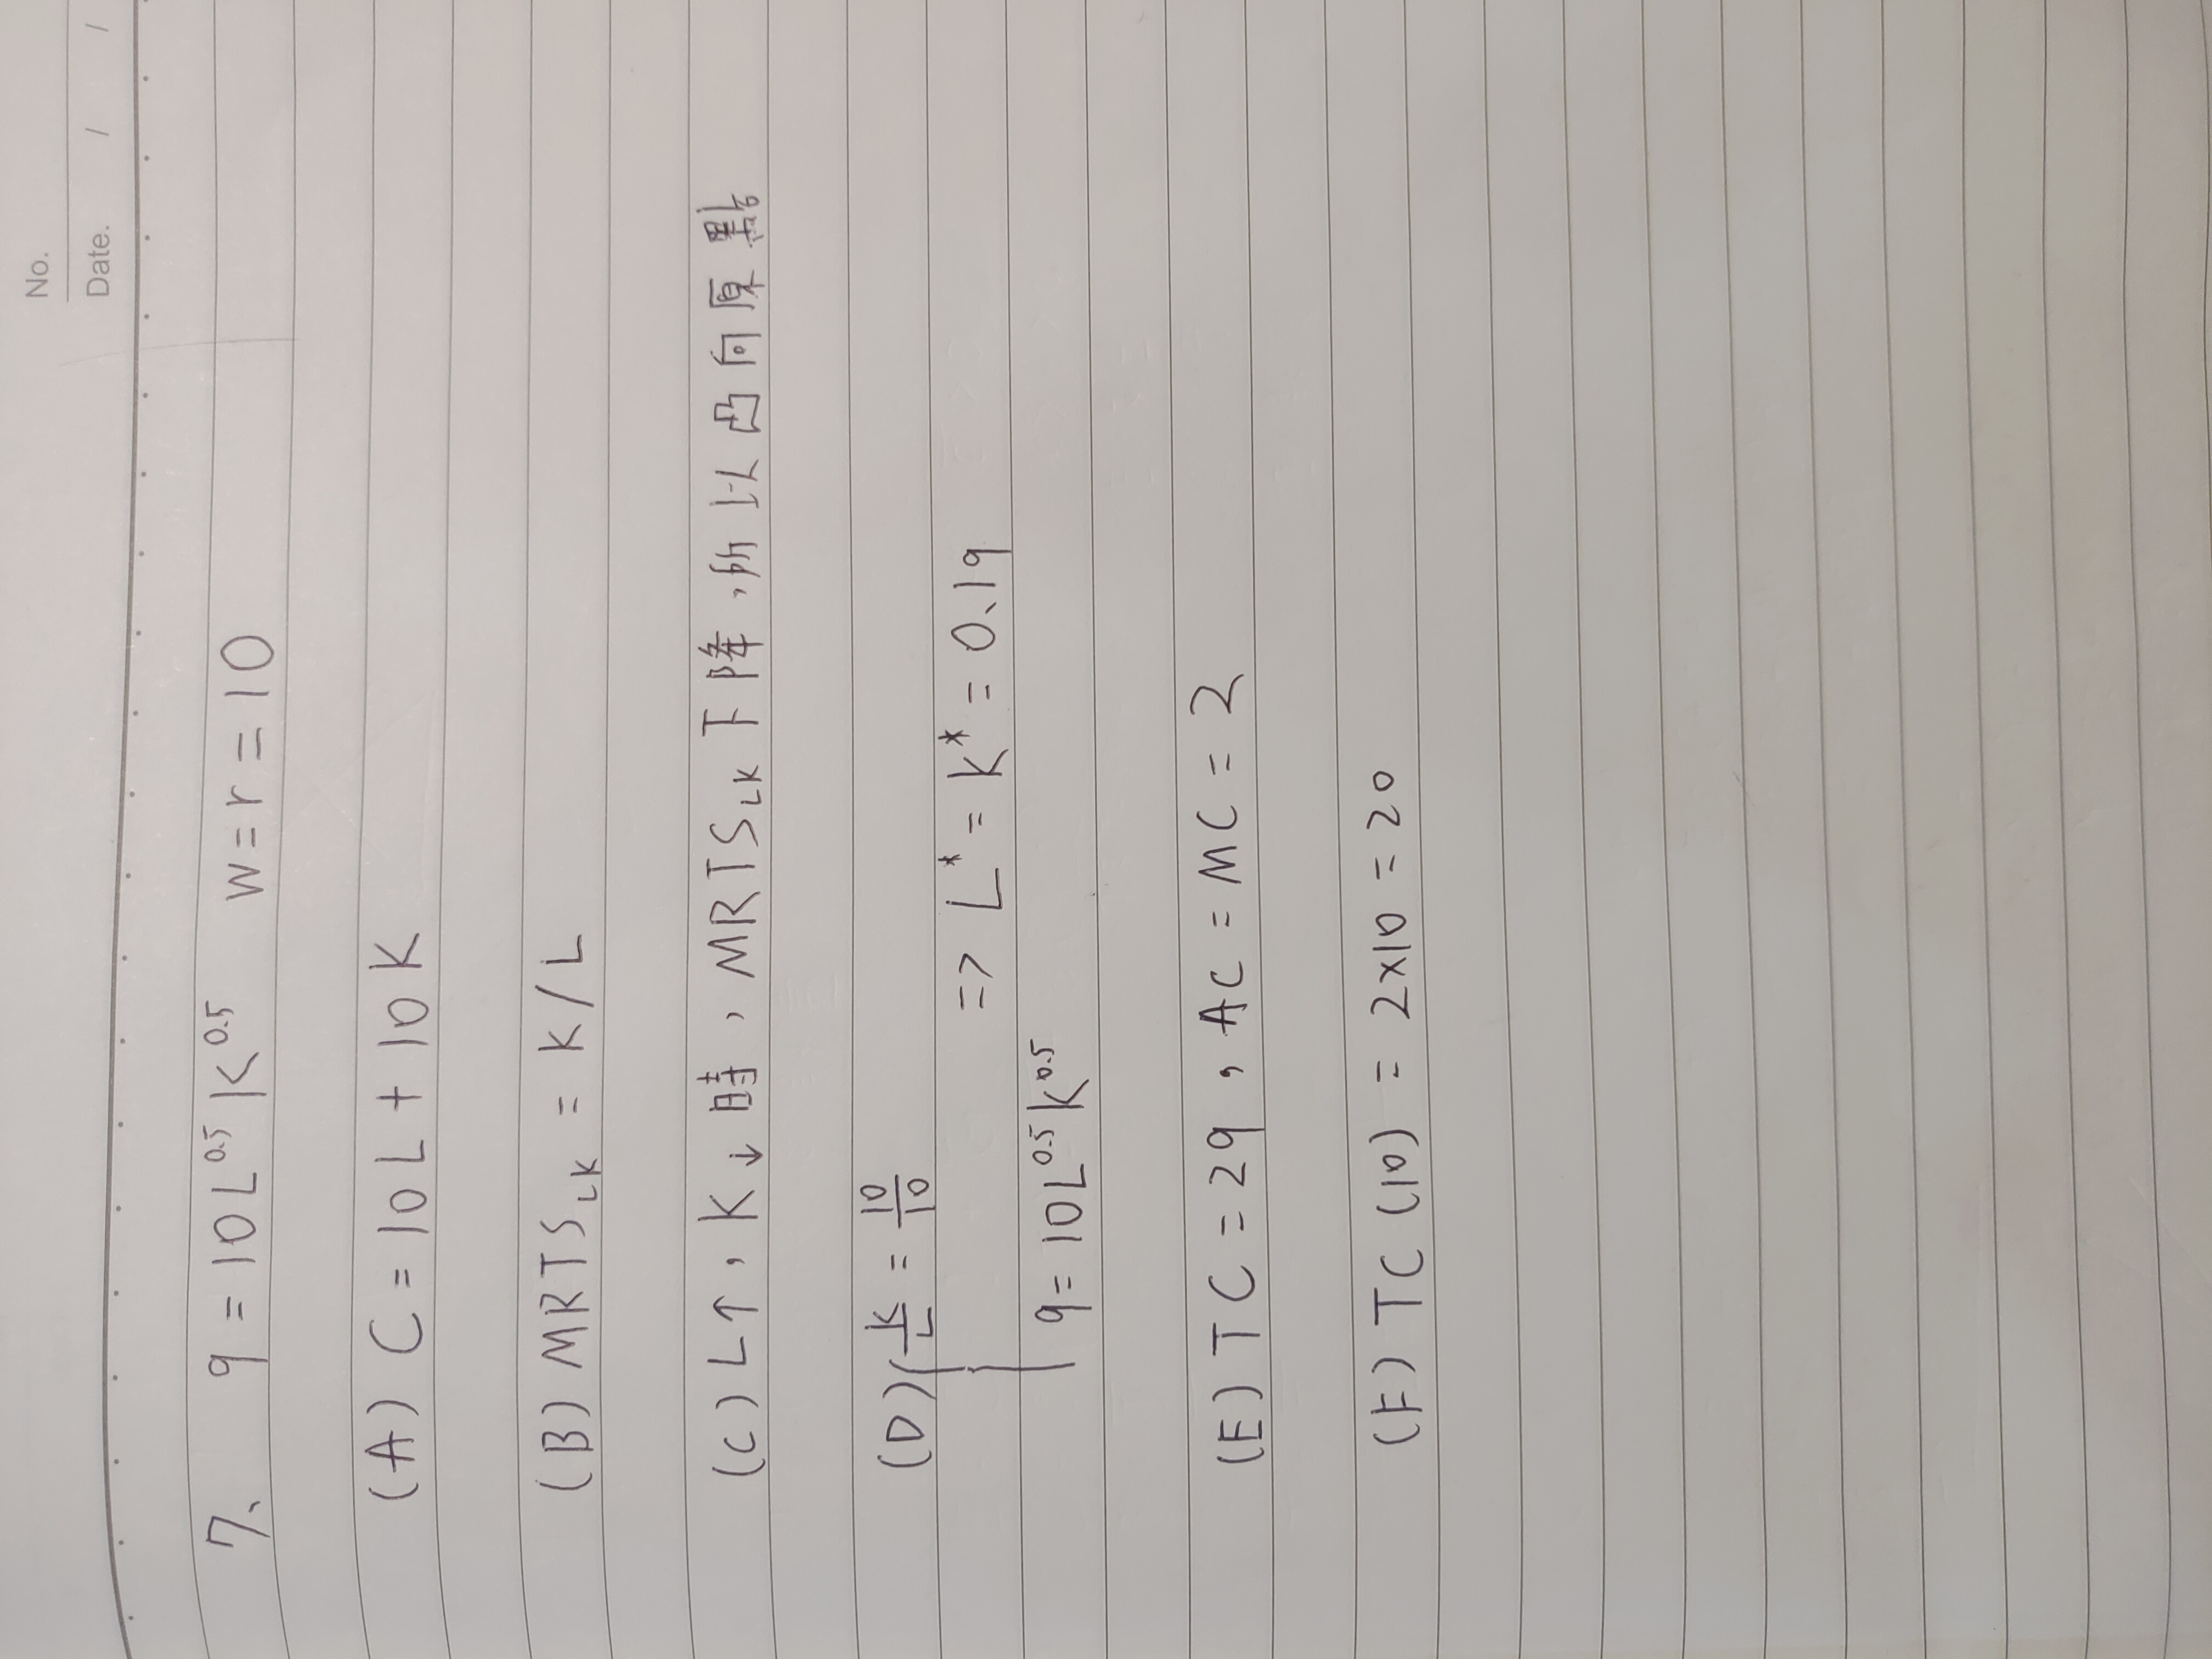 No.
Date. / /
7、 q = 10L^0.5 K^0.5 w=r=10
(A) C = 10L + 10K
(B) MRTS_LK = K/L
(C) L↑，K↓時，MRTS_LK下降，所以凸向原點
(D) { K/L = 10/10
=> L* = K* = 0.1q
q = 10L^0.5 K^0.5
(E) TC = 2q，AC = MC = 2
(F) TC (10) = 2×10 = 20